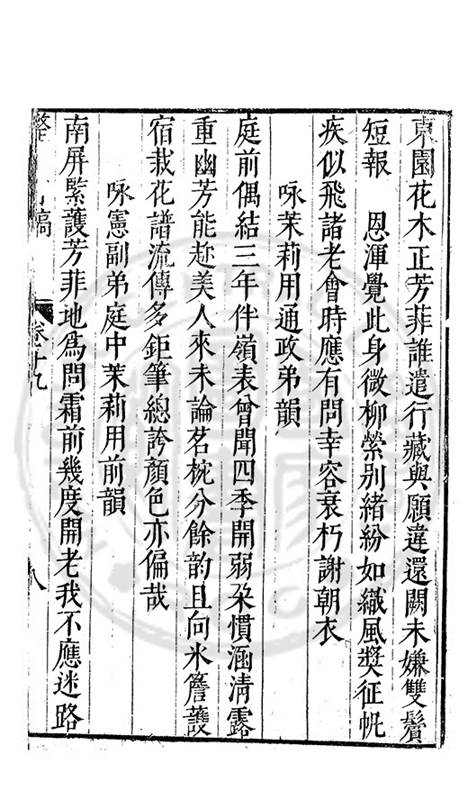 東園花木正芳菲誰遣行藏與願違還闕未嫌雙鬢
短報　恩渾覺此身微柳縈別緒紛如織風獎征帆
疾似飛諸老會時應有問幸容衰朽謝朝衣
咏茉莉用通政弟韻
庭前偶結三年伴嶺表曾聞四季開弱朶慣涵清露
重幽芳能趂美人來未論茗椀分餘韵且向氷簷護
宿栽花譜流傳多鉅筆總誇顏色亦偏哉
咏憲副弟庭中茉莉用前韻
南屏緊護芳菲地爲問霜前幾度開老我不應迷路
稿
卷十九
八